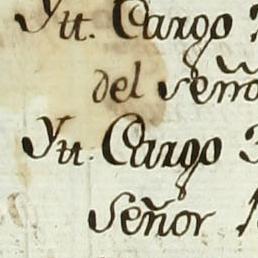 Ytt. Cargo
del Seño
Ytt. Cargo 3
Señor